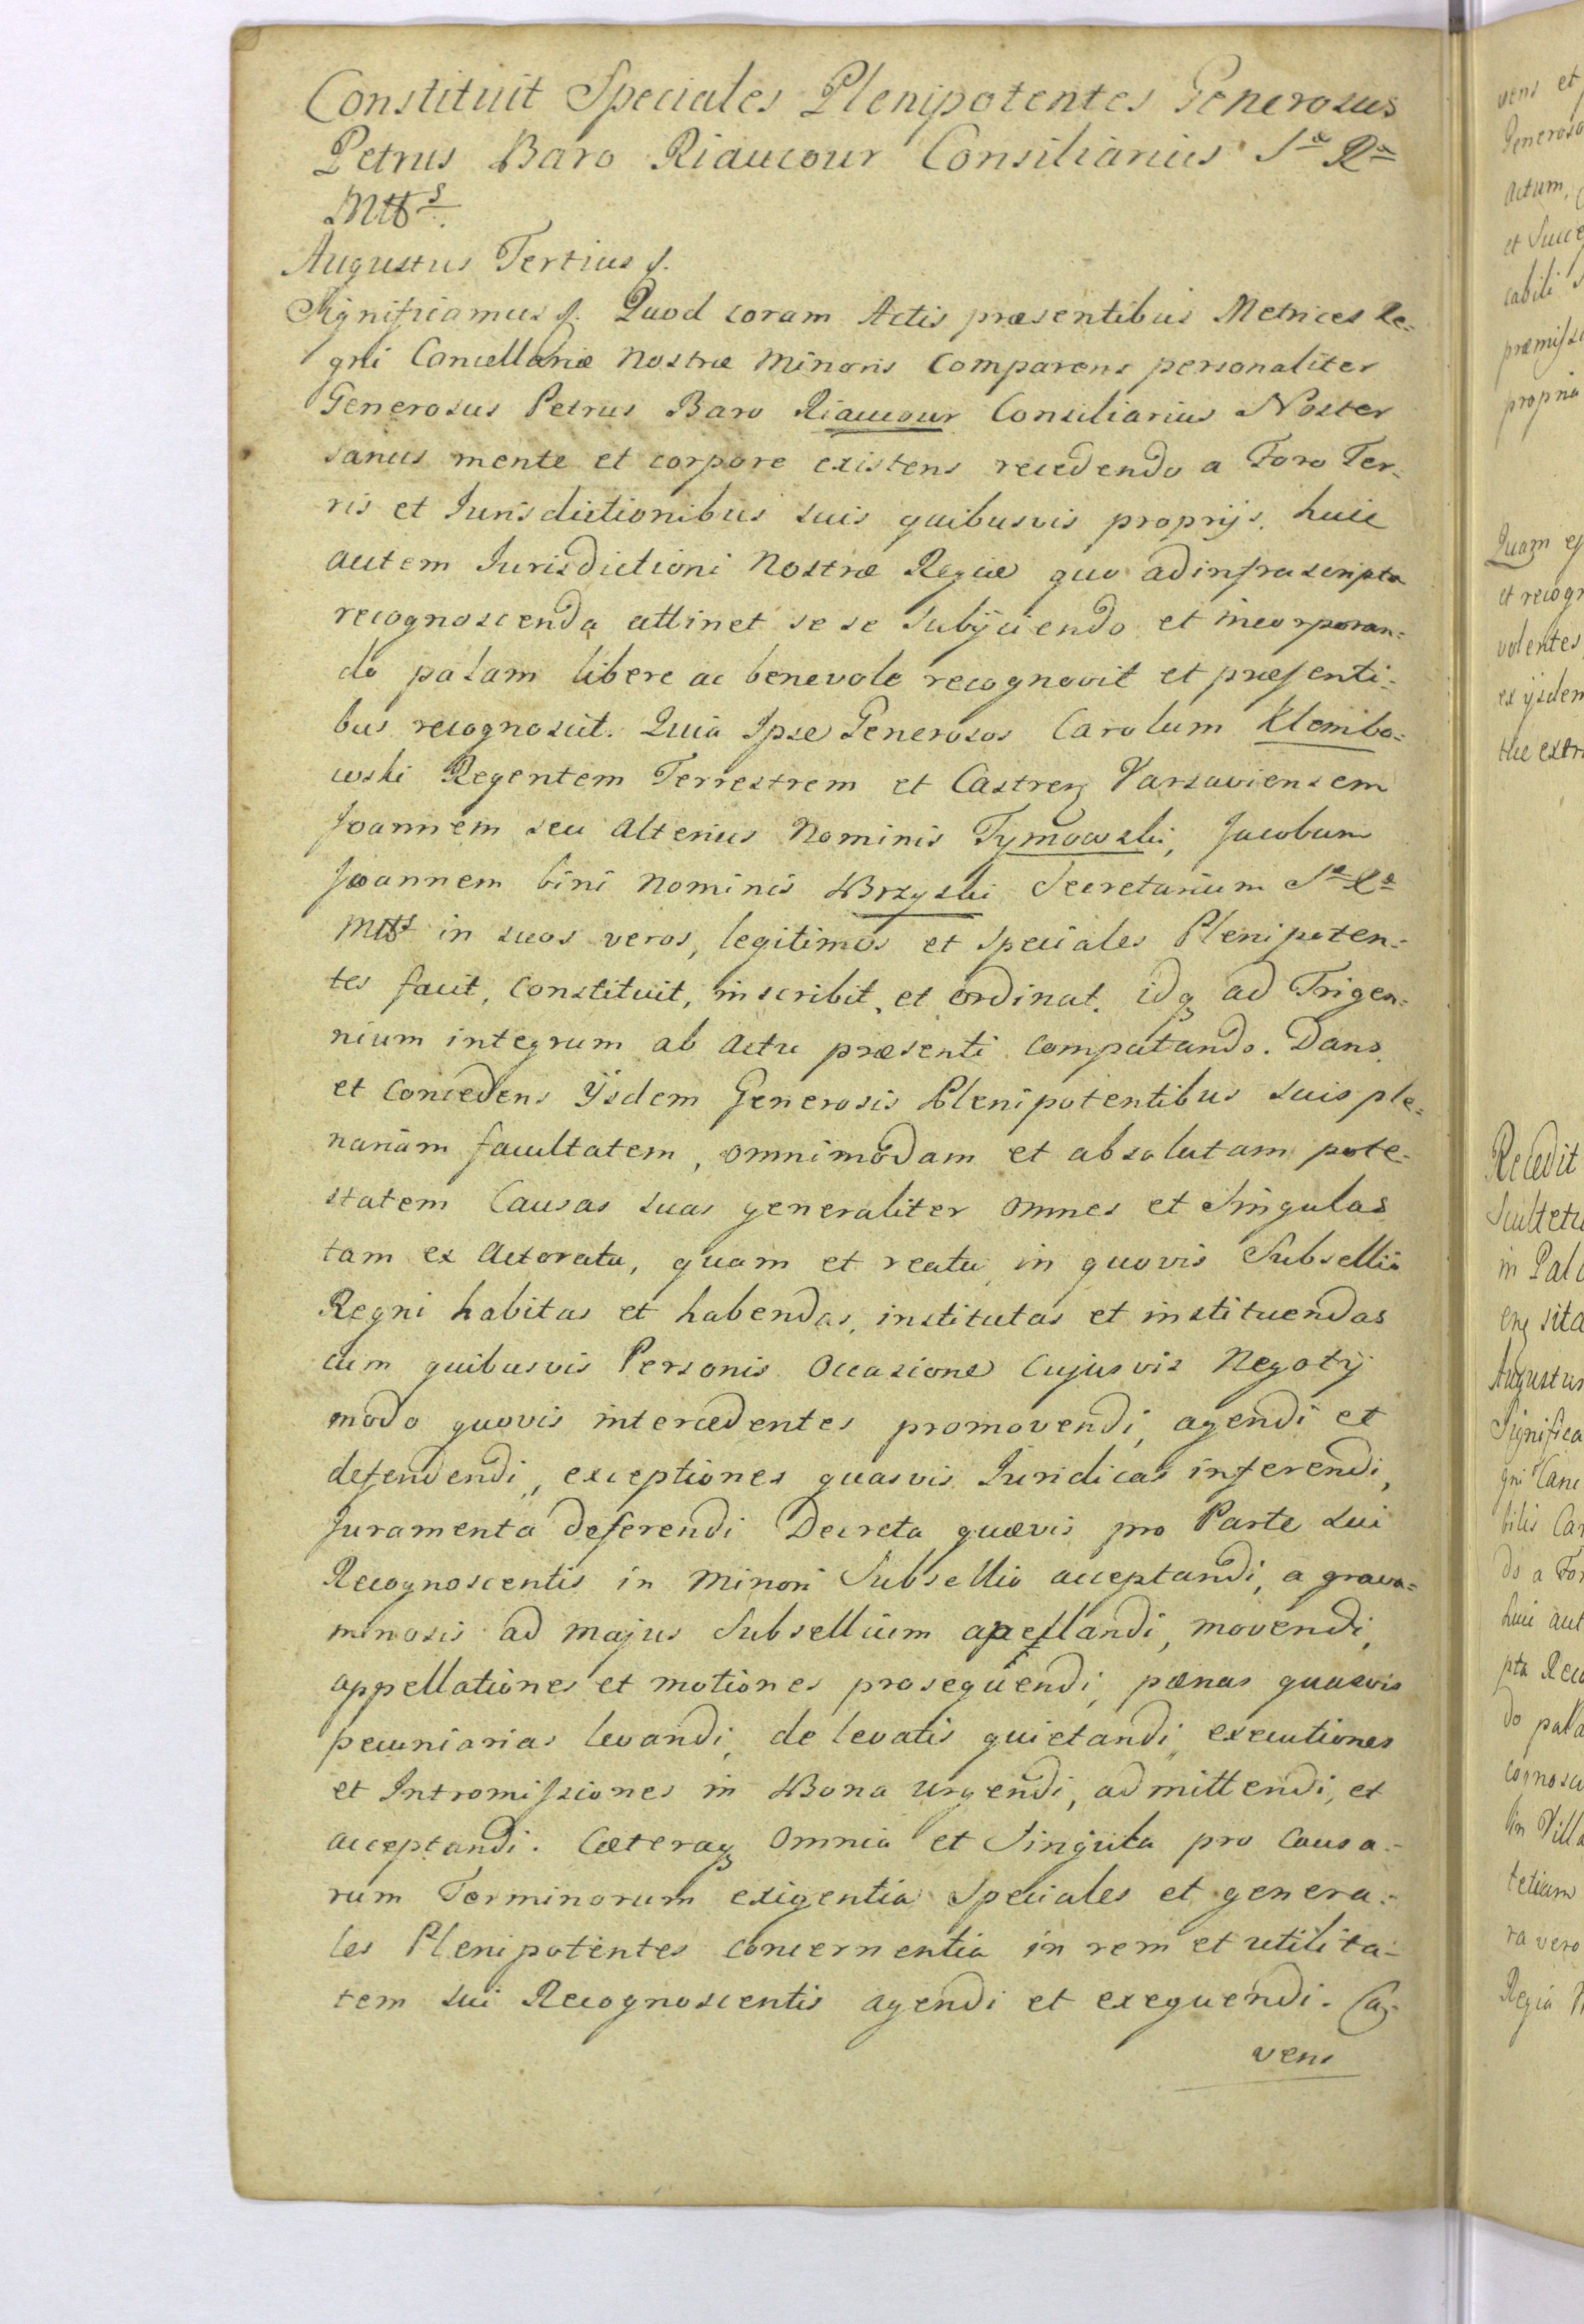 Constituit Speciales Plenipotentes Generosus
Petrus Baro Riaucour Consiliarius Sæ Ræ
Mttis.
Augustus Tertius &.
Significamus &. Quod coram Actis præsentibus Metrices Re=
gni Cancellariæ Nostræ Minoris Comparens personaliter
Generosus Petrus Baro Riaucour Consiliarius Noster
sanus mente et corpore existens recedendo a Foro Ter-
ris et Jurisdictionibus suis quibusvis proprijs. huic
autem Jurisdictioni Nostræ Regiæ quo ad infrascripta
recognoscenda attinet se se Subijciendo et incorporan=
do palam libere ac benevole recognovit et præsenti-
bus recognoscit. Quia Ipse Generosos Carolum Klembo=
wski Regentem Terrestrem et Castrenȝ Varsaviensem
Joannem seu alterius Nominis Tymowski, Jacobum
Joannem bini Nominis Brzyski Secretarium Sæ Ræ
Mttis in suos veros, legitimos et speciales Plenipoten=
tes facit, Constituit, inscribit, et ordinat. idqȝ ad Trigen=
nium integrum ab actu præsenti computando. Dans
et Concedens Ijsdem Generosis Plenipotentibus suis ple=
nariam facultatem, omnimodam et absolutam pote-
statem Causas suas generaliter omnes et Singulas
tam ex Actoratu, quam et reatu in quovis Subsellio
Regni habitas et habendas, institutas et instituendas
cum quibusvis Personis Occasione Cujusvis Negotij
modo quovis intercedentes promovendi, agendi et
defendendi, exceptiones quasvis Juridicas inferendi,
Juramenta deferendi Decreta quævis pro Parte Sui
Recognoscentis in Minori Subsellio acceptandi, a grava=
minosis ad majus Subsellium apellandi, movendi,
appellationes et motiones prosequendi, pænas quasvis
pecuniarias levandi, de levatis quietandi, executiones
et Intromissiones in Bona urgendi, admittendi, et
acceptandi. Cæteraqȝ Omnia et Singula pro Causa-
rum Terminorum exigentia Speciales et genera-
les Plenipotentes concernentia in rem et utilita-
tem sui Recognoscentis agendi et exequendi. Ca-
vens
vens et
Generoso
actum,
et Succe
cabili
præmisso
propria
Quam
et recogn
volentes
ex ijsdem
the extr
Recedit
Scultetu
in Pala
enȝ sita
Augustus
Significa
gni Canc
bilis Car
do a For
huic aut
pta Reco
do pala
cognosci
in Villa
tetiam
ra vero
Regia